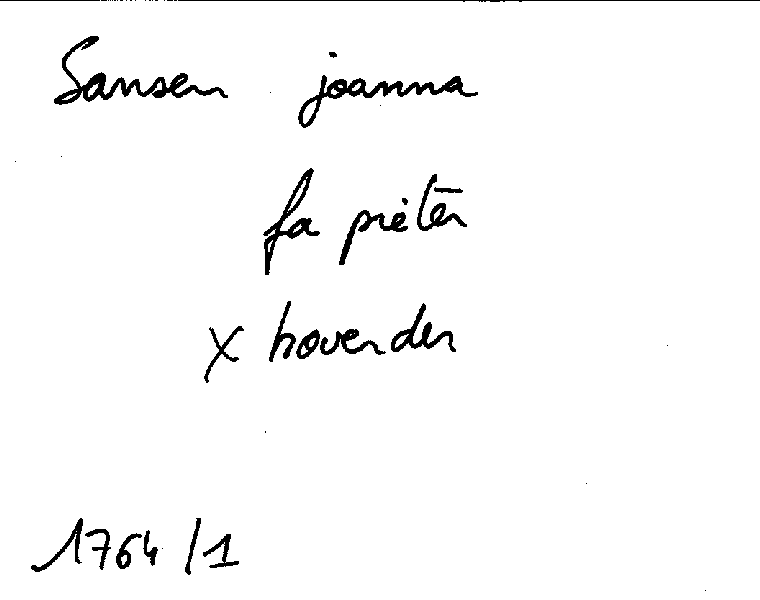 Sansen joanna
fa pieter
x hovenden
1764/1